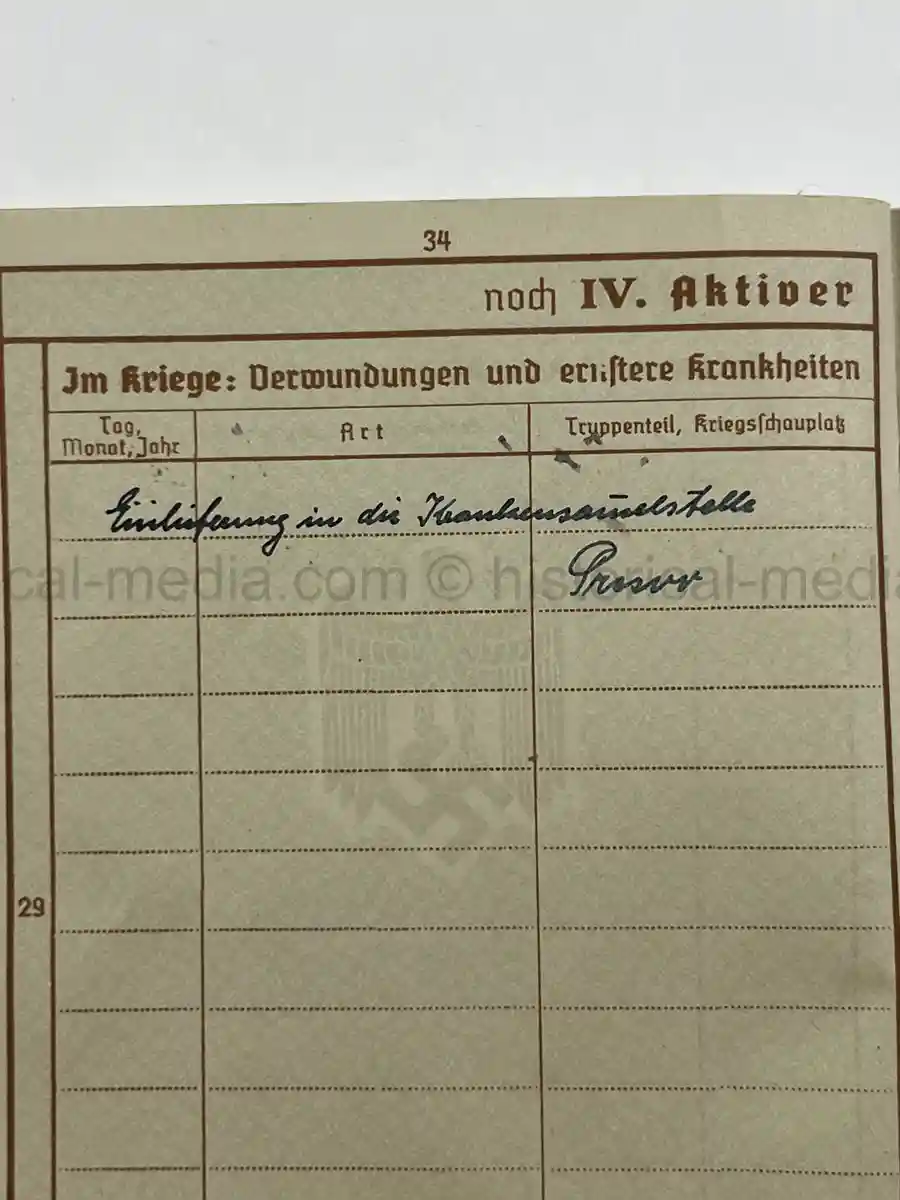 34
noch IV. Aktiver
Im Kriege: Verwundungen und ernstere Krankheiten
Tag, Monat, Jahr
Art
Truppenteil, Kriegsschauplatz
Einlieferung in die Krankensam̄elstelle
Presov
cal-media.com © historical-media
29